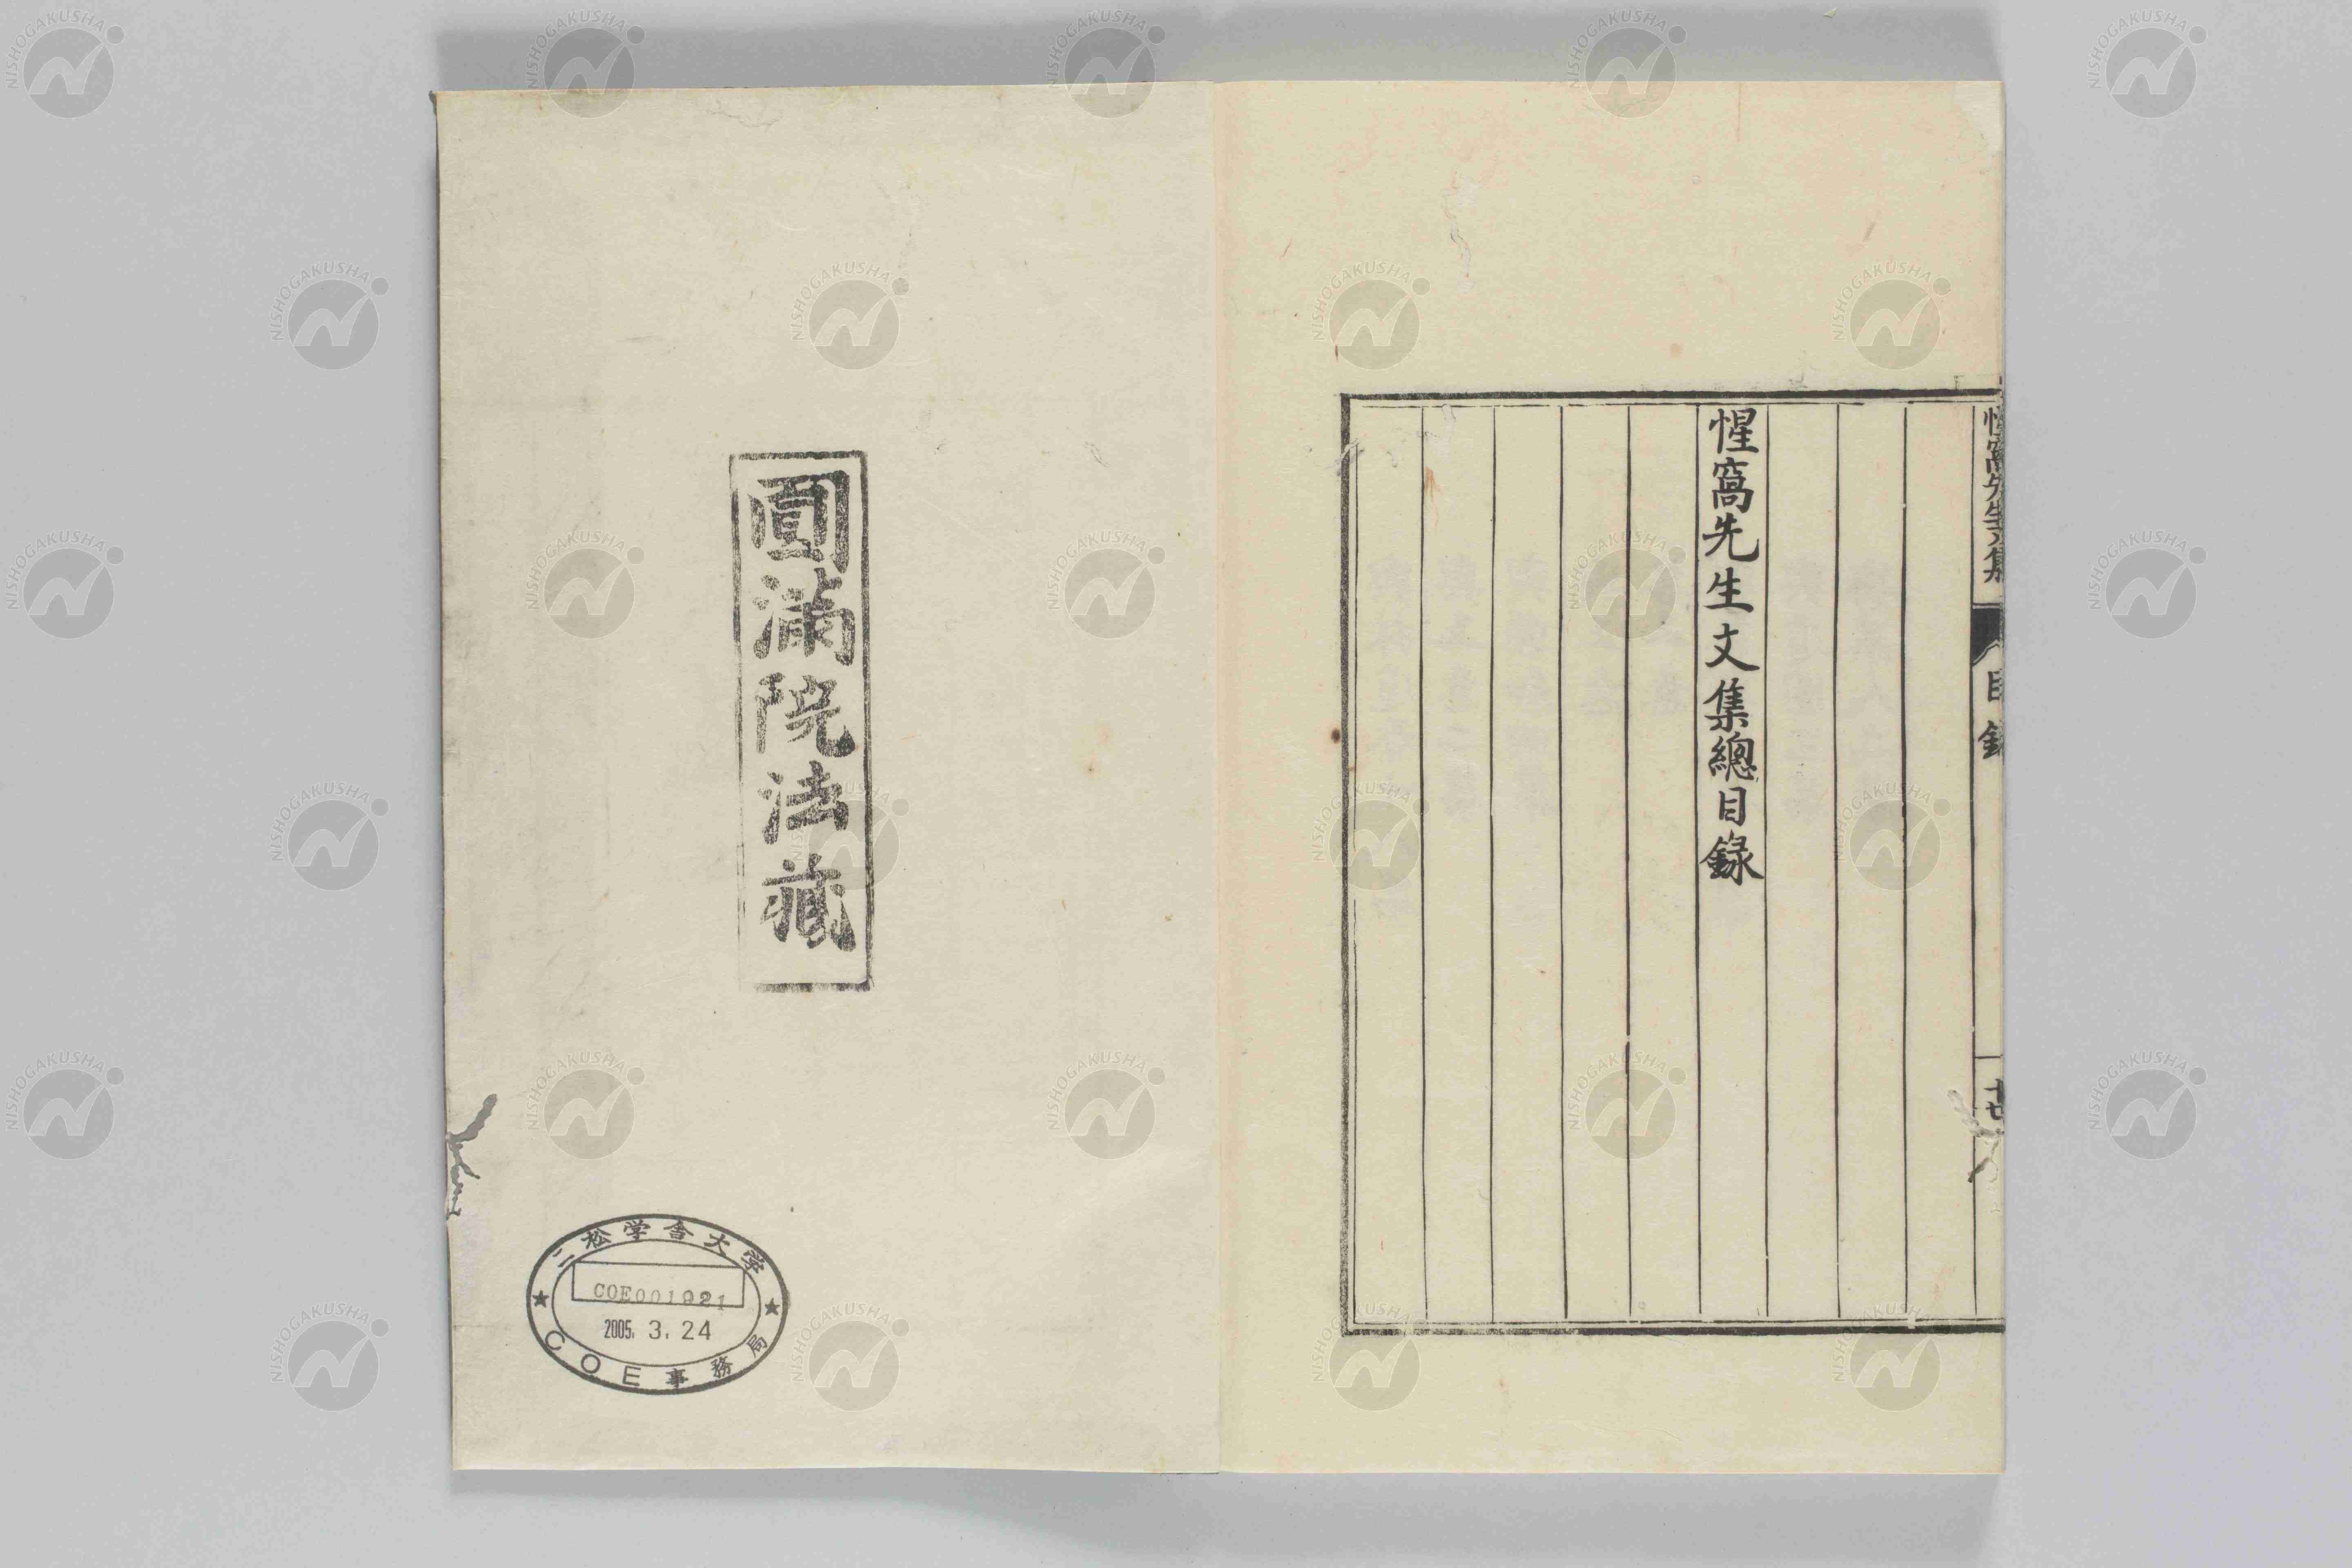 惺窩先生文集
目錄
廿七
惺窩先生文集總目錄
圓滿院法藏
二松学舎大学
COE001921
2005. 3. 24
★ COE事務局 ★
NISHOGAKUSHA